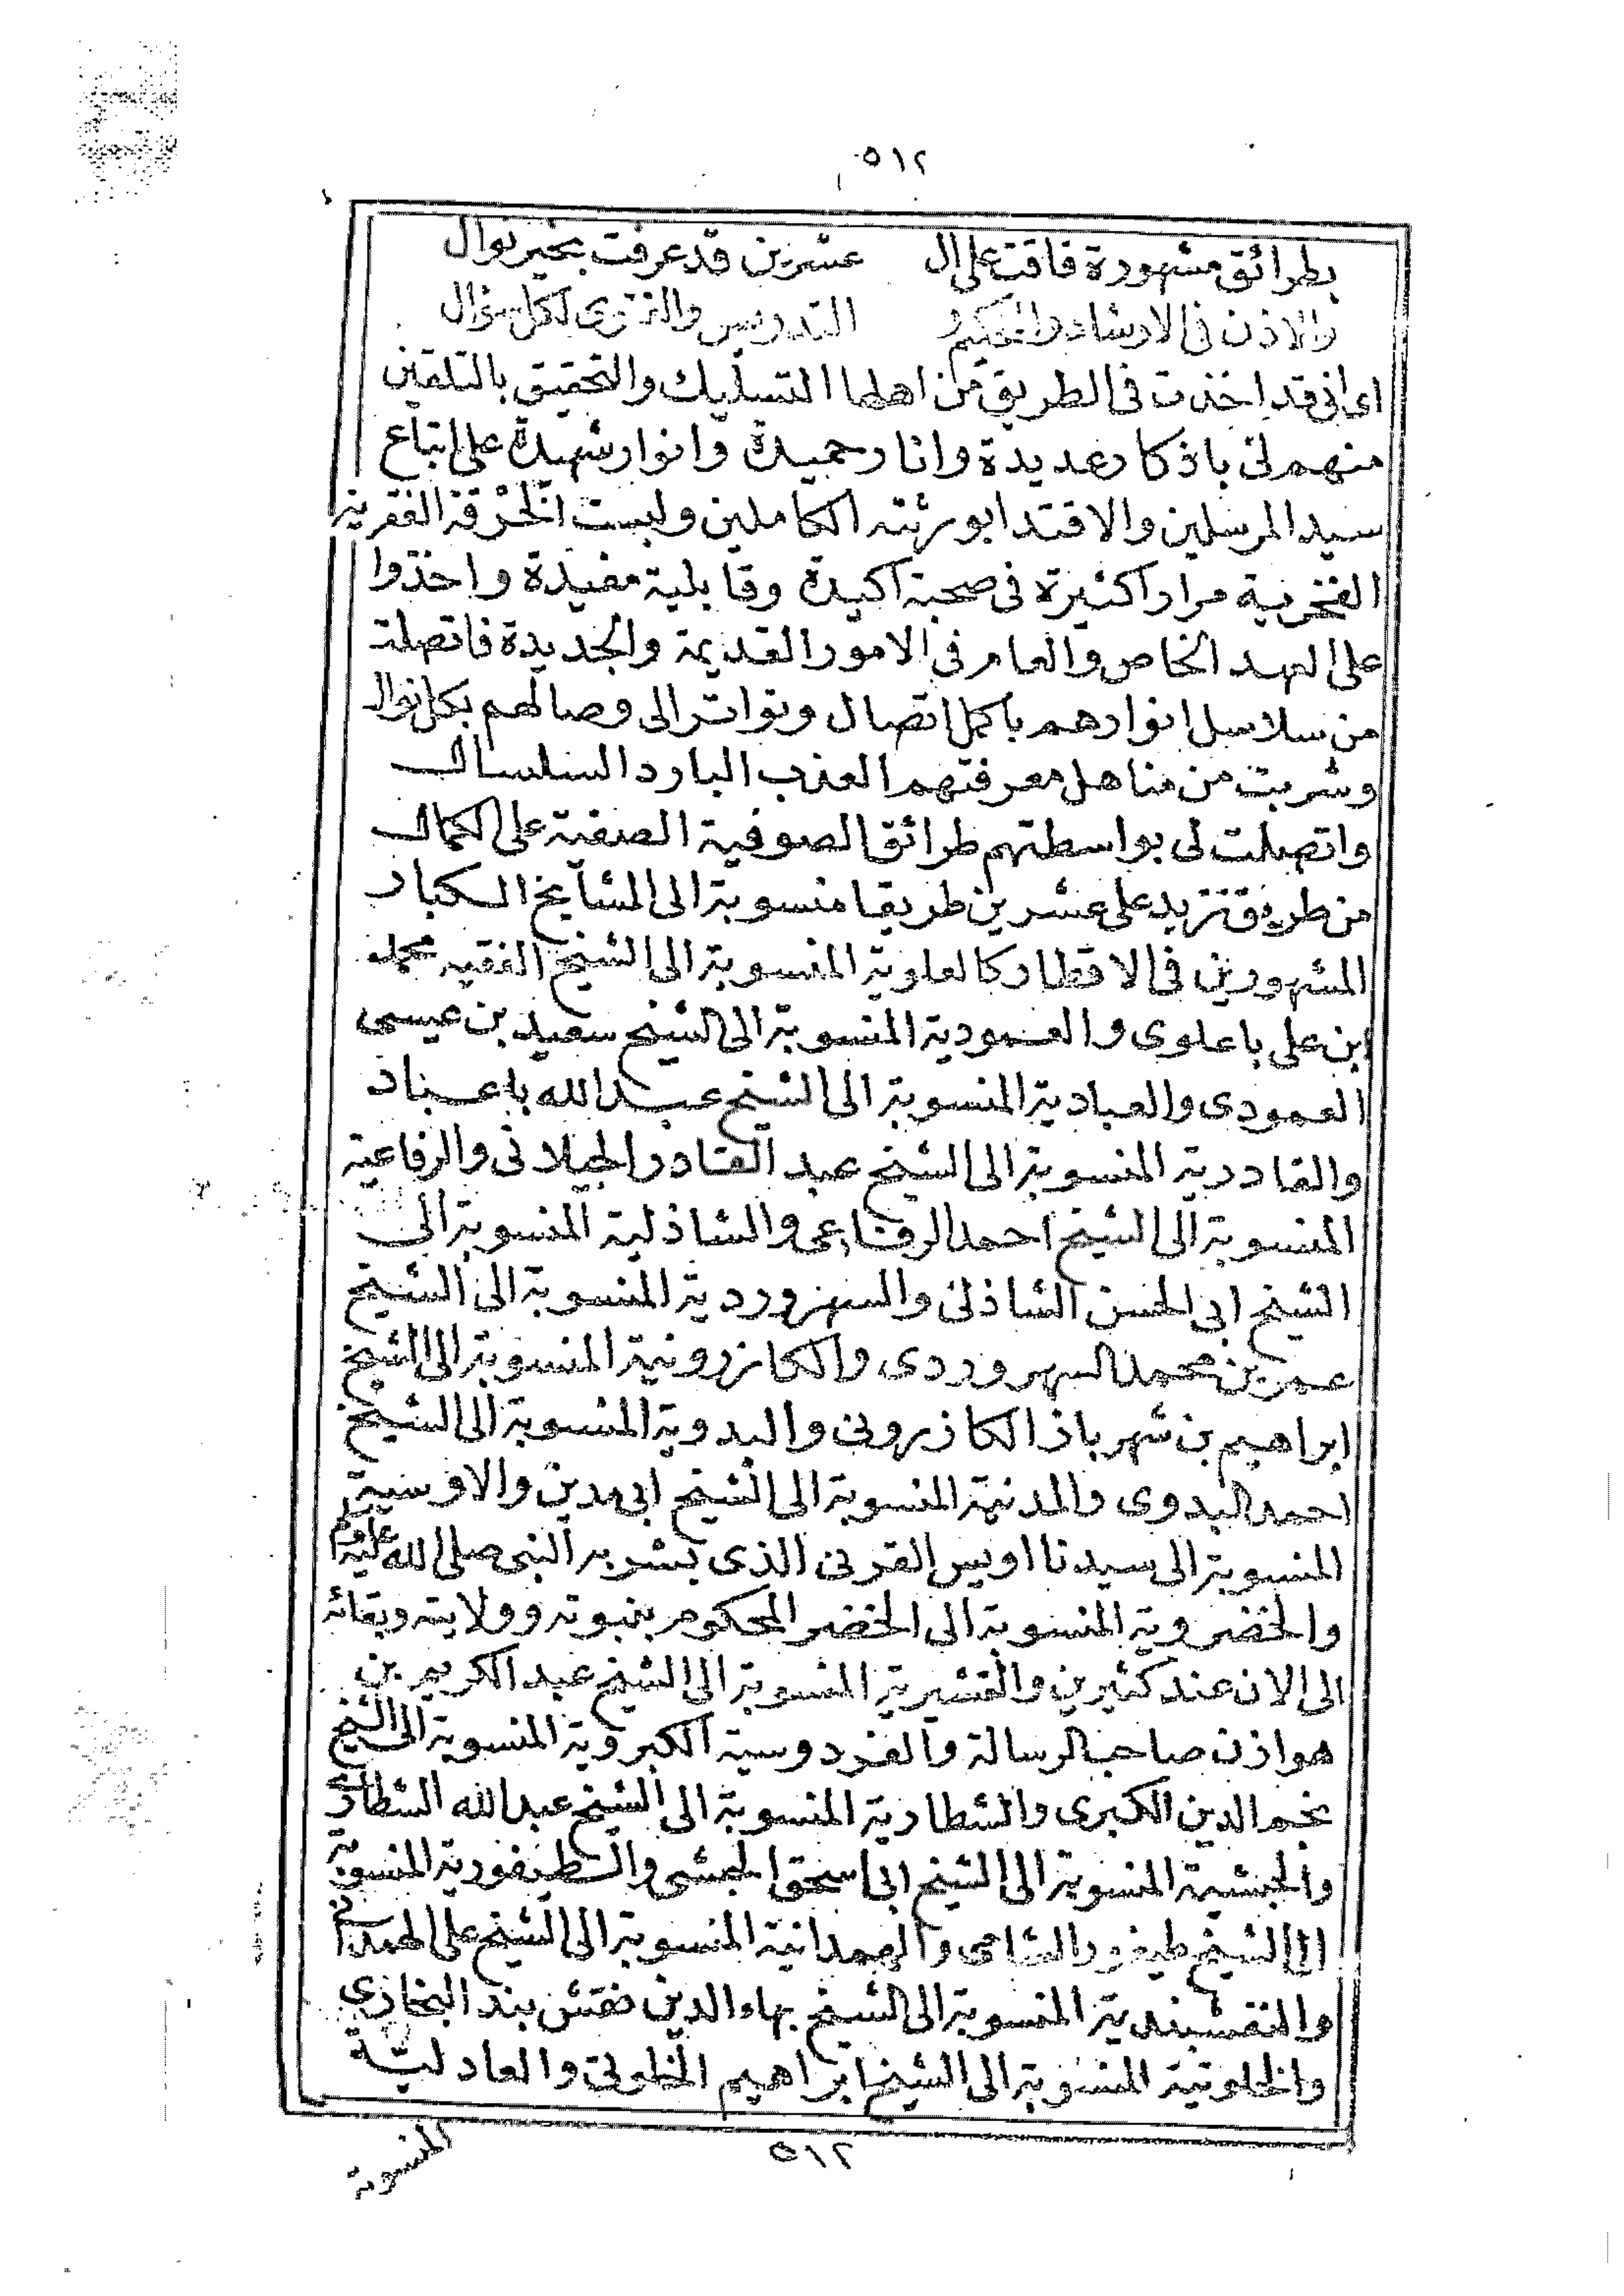 ٥١٢
بطرائق مشهورة فاقت على ال عشرين قد عرفت بخير نوال
والاذن فى الارشاد والتحكيم و التدريس والفتوى لكل سؤال
اى انى قد اخذت فى الطريق من اهلها التسليك والتحقيق بالتلقين
منهم لى باذكار عديدة وانار حميدة وانوار شهيدة على اتباع
سيد المرسلين والاقتدا بورثته الكاملين ولبست الخرقة الفقرية
الفخرية مرارا كثيرة فى صحبة اكيدة وقابلية مفيدة واخذوا
على العهد الخاص والعام فى الامور القديمة والجديدة فاتصلت
من سلاسل انوارهم باكمل اتصال وتواتر الى وصالهم بكل نوال
وشربت من مناهل معرفتهم العذب البارد السلسال
واتصلت لى بواسطتهم طرائق الصوفية الصفية على الكمال
من طريق تزيد على عشرين طريقا منسوبة الى المشآيخ الكبار
المشهورين فى الاقطار كالعلوية المنسوبة الى الشيخ الفقيه محمد
ابن على باعلوى والعمودية المنسوبة الى الشيخ سعيد بن عيسى
العمودى والعبادية المنسوبة الى الشيخ عبد الله باعباد
والقادرية المنسوبة الى الشيخ عبد القادر الجيلانى والرفاعية
المنسوبة الى الشيخ احمد الرفاعى والشاذلية المنسوبة الى
الشيخ ابى الحسن الشاذلى والسهروردية المنسوبة الى الشيخ
عمر بن محمد السهروردى والكازرونية المنسوبة الى الشيخ
ابراهيم بن شهرباذ الكازرونى والبدوية المنسوبة الى الشيخ
احمد البدوى والمدنية المنسوبة الى الشيخ ابى مدين والاوسية
المنسوبة الى سيدنا اويس القرنى الذى بشر به النبى صلى الله عليه وسلم
والخضروية المنسوبة الى الخضر المحكوم بنبوته وولايته وبقائه
الى الان عند كثيرين والقشيرية المنسوبة الى الشيخ عبد الكريم بن
هوازن صاحب الرسالة والفردوسية الكبروية المنسوبة الى الشيخ
نجم الدين الكبرى والشطارية المنسوبة الى الشيخ عبد الله الشطارى
والجشتية المنسوبة الى الشيخ ابى اسحق الجشتى والطيفورية المنسوبة
الى الشيخ طيفور الشامى والهمدانية المنسوبة الى الشيخ على الهمدانى
والنقشبندية المنسوبة الى الشيخ بهاء الدين نقش بند البخارى
والخلوتية المنسوبة الى الشيخ ابراهيم الخلوتى والعادلية
المنسوبة
٥١٢